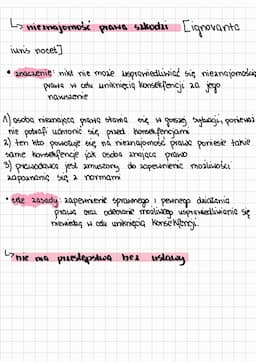 ↳ nieznajomość prawa szkodzi [ignorantia
iuris nocet]
• znaczenie: nikt nie może usprawiedliwiać się nieznajomością
prawa w celu uniknięcia konsekwencji za jego
naruszenie
1) osoba nieznająca prawa stawia się w gorszej sytuacji, ponieważ
nie potrafi uchronić się przed konsekwencjami
2) ten kto powołuje się na nieznajomość prawa poniesie takie
same konsekwencje jak osoba znająca prawo
3) prawodawca jest zmuszony do zapewnienie możliwości
zapoznania się z normami
• cele zasady: zapewnienie sprawnego i pewnego działania
prawa oraz odebranie możliwego usprawiedliwiania się
niewiedzą w celu uniknięcia konsekwencji.
↳ nie ma przestępstwa bez ustawy